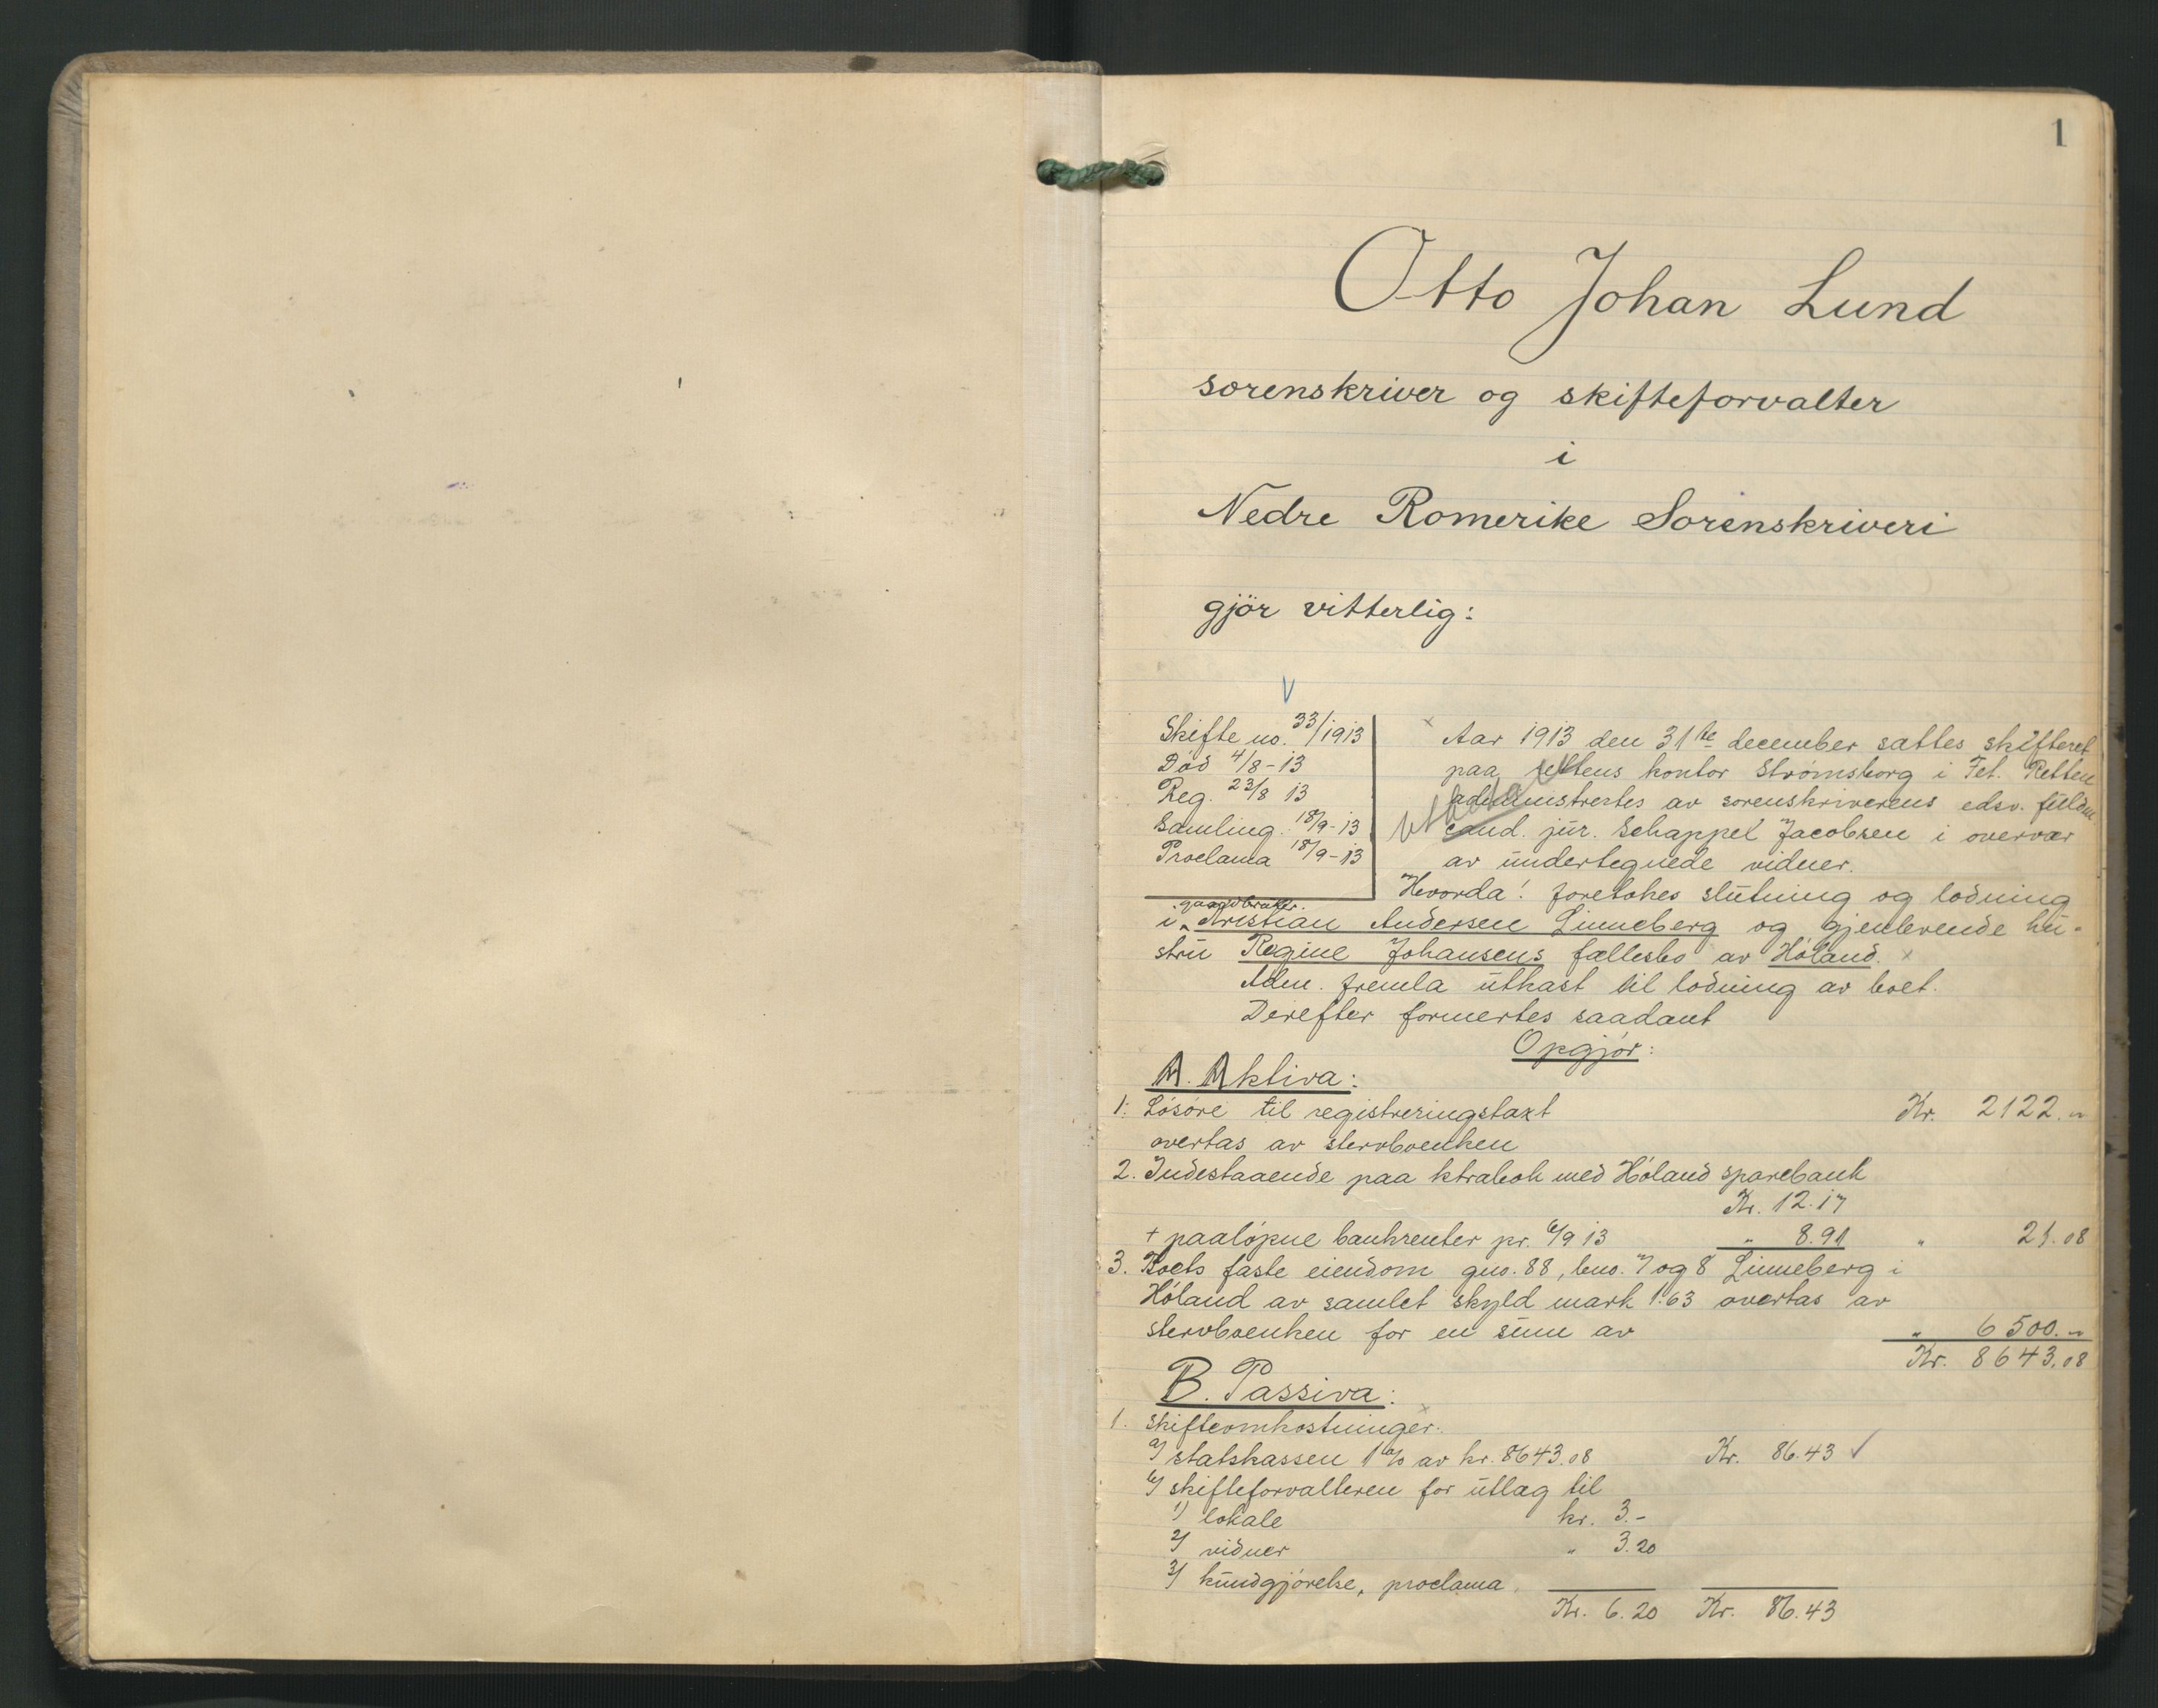 1
Otto Johan Lund
sorenskriver og skifteforvalter
i
Nedre Romerike Sorenskriveri
gjör vitterlig:
Skifte no. 33/1913
Död 4/8-13
Reg. 23/8 13
Samling. 18/9-13
Proclama 18/9-13
Aar 1913 den 31te december sattes skifteret
paa rettens kontor Strømsborg i Fet. Retten
administrertes av sorenskriverens edsv. fuldm
cand. jur. Schappel Jacobsen i overvær
av undertegnede vidner.
Hvorda! foretokes slutning og lodning
gaardbruker.
i Kristian Andersen Linneberg og gjenlevende hu-
stru Regine Johansens fællesbo av Höland.
Adm. fremla utkast til lodning av boet.
Derefter formertes saadant
Opgjör:
A. Aktiva:
1. Lösöre til registreringstaxt Kr. 2122.-
overtas av stervboenken
2. Indestaaende paa ktrabok med Höland sparebank
Kr. 12.17
+ paalöpne bankrenter pr. 6/9 13 " 8.91 " 21.08
3. Boets faste eiendom gno. 88, bno. 7 og 8 Linneberg i
Höland av samlet skyld mark 1.63 overtas av
stervboenken for en sum av " 6500.-
Kr. 8643.08
B. Passiva:
1. Skifteomkostninger.
a/ statskassen 1% av kr. 8643.08 Kr. 86.43
b/ skifteforvalteren for utlæg til
1) lokale kr. 3.-
2/ vidner " 3.20
3/ kundgjörelse, proclama
Kr. 6.20 Kr. 86.43